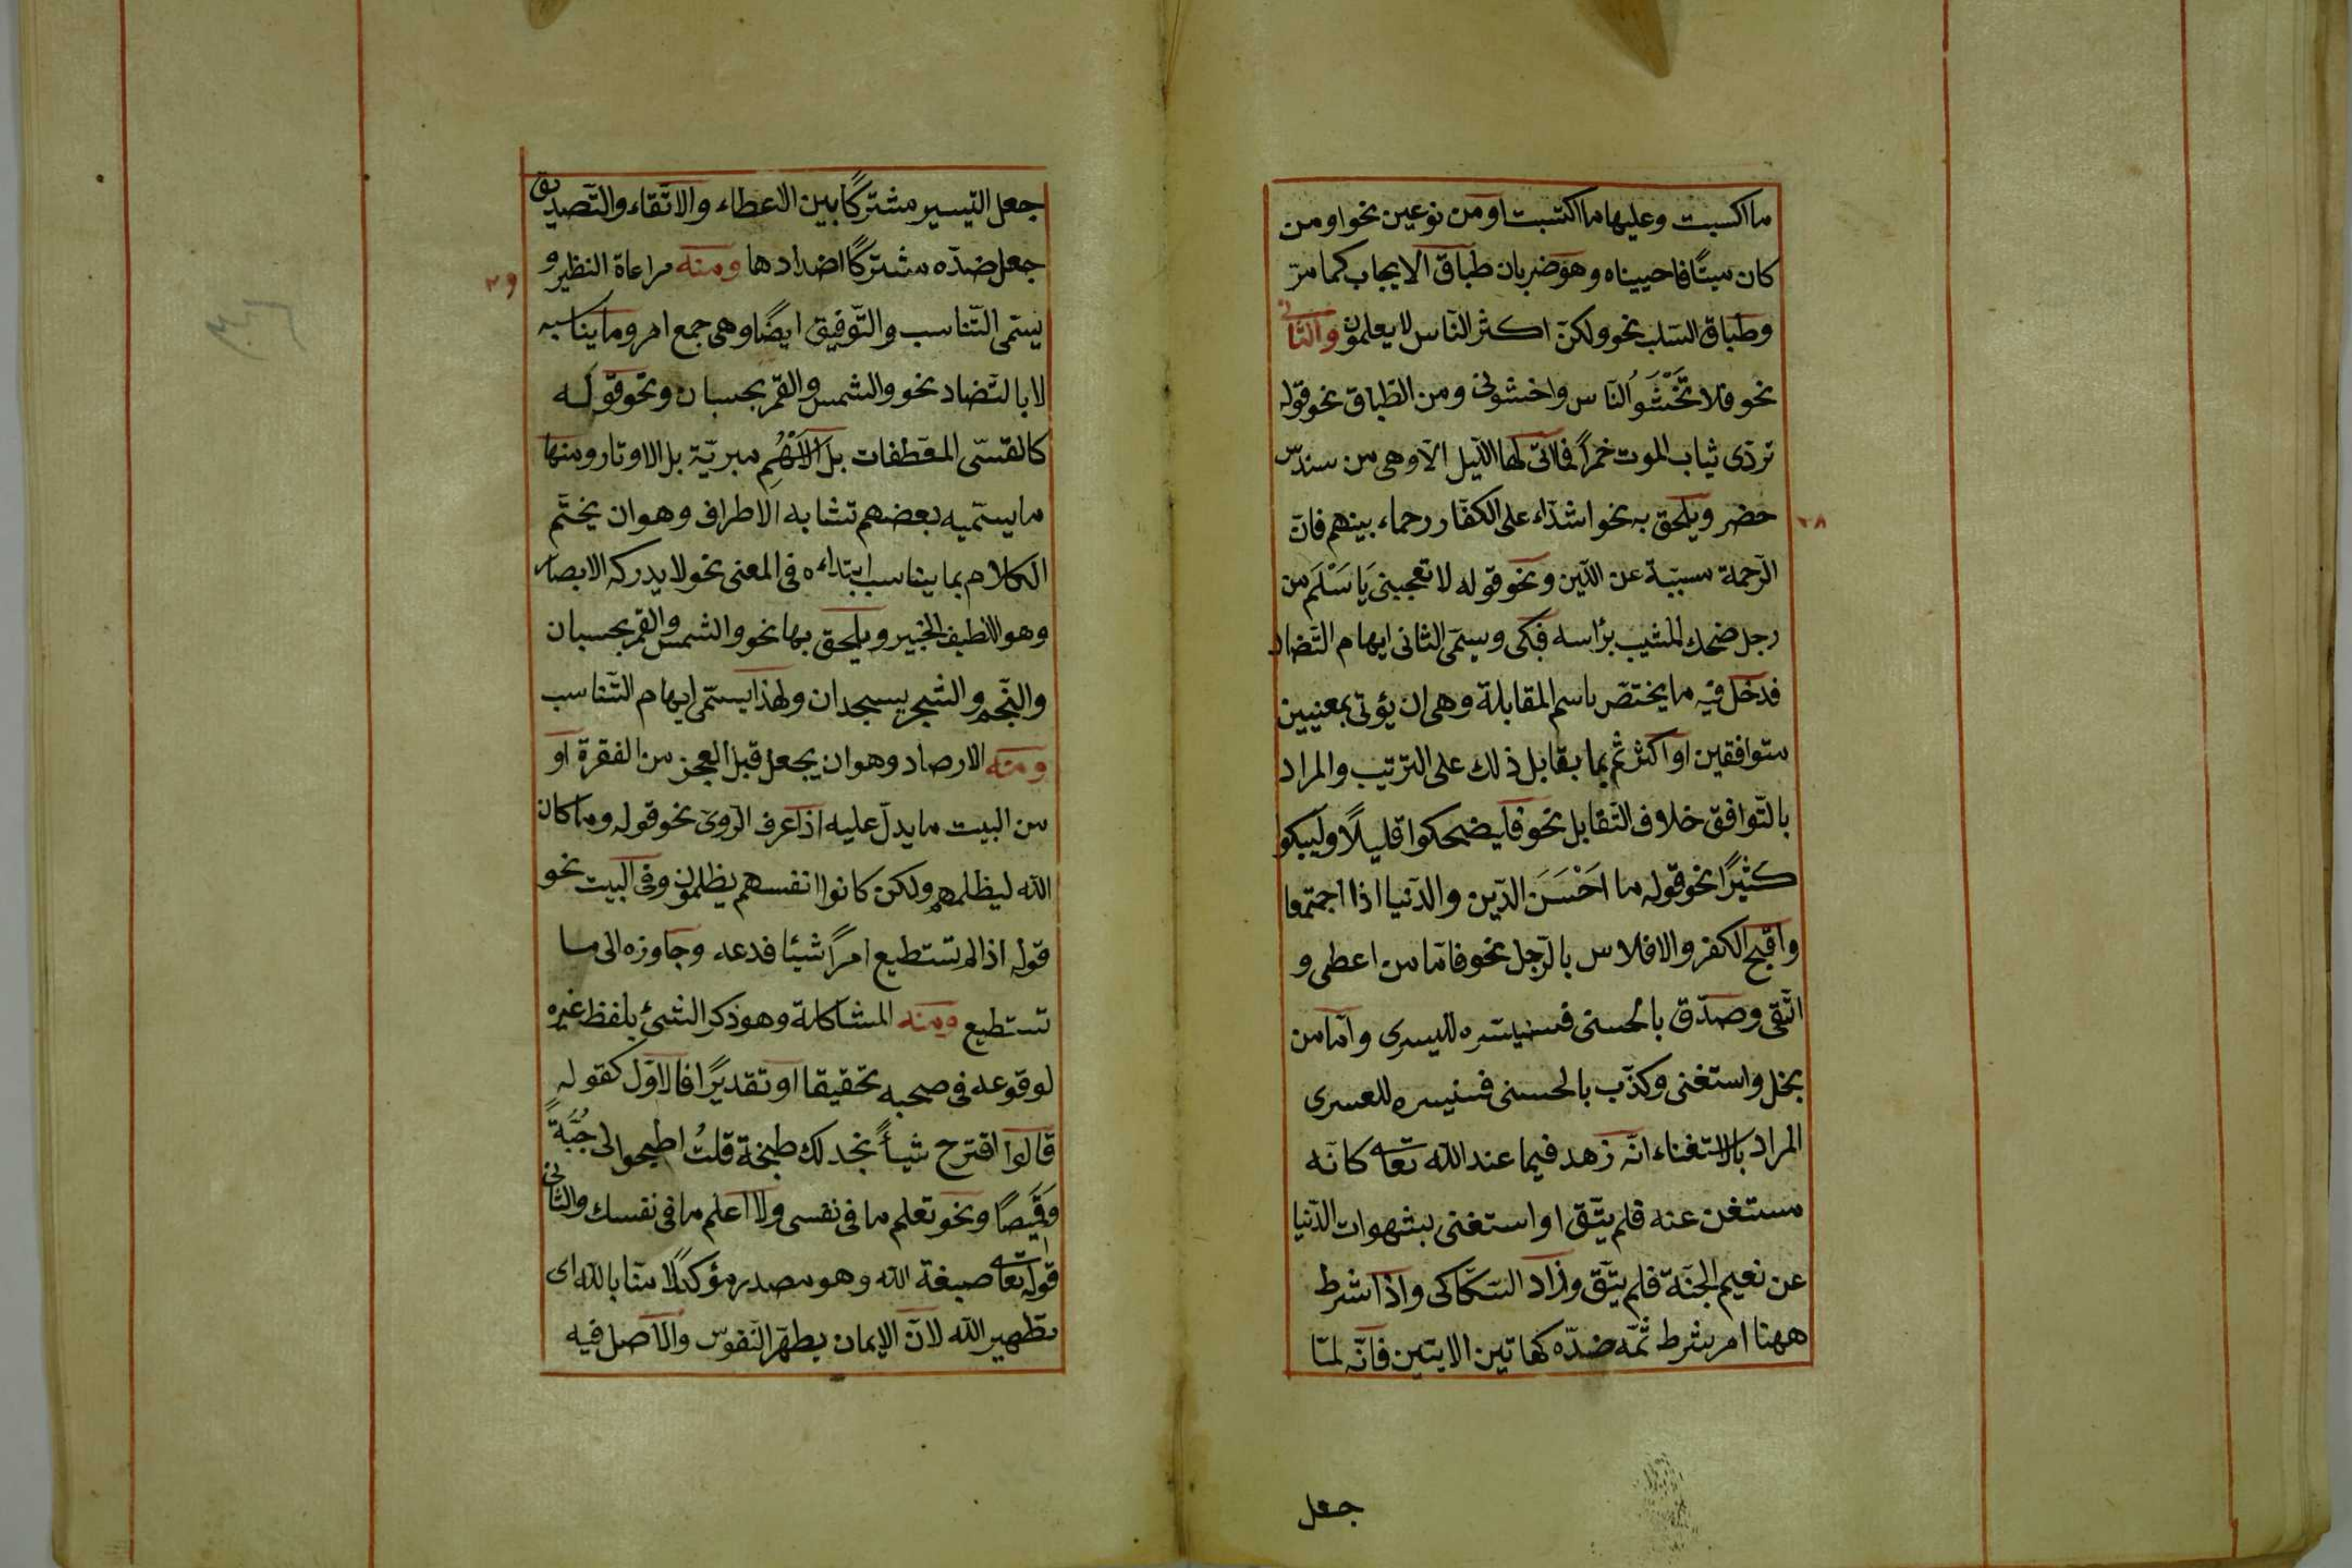 ما اكسبت وعليها ما اكتسبت او من نوعين نحو اومن
كان ميتًا فاحييناه وهو ضربان طباق الايجاب كما مرّ
وطباق السّلب نحو ولكنّ اكثر النّاس لا يعلمون والثانى
نحو فلا تَخْشَوُا النّاس واخشونى ومن الطّباق نحو قوله
تردّى ثياب الموت حمرًا فما اتى لها اللّيل الّا وهى من سندس
خضر ويلحق به نحو اشدّاء على الكفّار رحماء بينهم فانّ
الرّحمة مسبّبة عن اللّين ونحو قوله لا تعجبى يَا سَلْمَ من
رجل ضحك المشيب براسه فبكى ويسمّى الثانى ايهام التّضاد
فدخل فيه ما يختصّ باسم المقابلة وهى ان يؤتى بمعنيين
متوافقين او اكثر ثمّ بما يقابل ذلك على التّرتيب والمراد
بالتّوافق خلاف التّقابل نحو فليضحكوا قليلًا وليبكو
كثيرًا نحو قوله ما اَحْسَنَ الدّين والدّنيا اذا اجتمعا
واقبح الكفر والافلاس بالرّجل نحو فامّا من اعطى و
اتّقى وصدّق بالحسنى فسنيسّره لليسرى وامّا من
بخل واستغنى وكذّب بالحسنى فسنيسره للعسرى
المراد بالاستغناء انّه زهد فيما عند الله تعالى كانّه
مستغن عنه فلم يتّق او استغنى بشهوات الدّنيا
عن نعيم الجنّة فلم يتّق وزاد السّكّاكى واذا شرط
ههنا امر شرط ثمّه ضدّه كهاتين الايتين فانّه لمّا
٢٨
جعل
جعل التيسير مشتركًا بين الاعطاء والاتّقاء والتّصديق
جعل ضدّه مشتركًا اضدادها ومنه مراعاة النظير و
يسمّى التّناسب والتّوفيق ايضًا وهى جمع امر وما يناسبه
لا بالتّضاد نحو والشمس والقمر بحسبان ونحو قوله
كالقسّى المعطّفات بل الاَسْهُمِ مبريّة بل الاوتار ومنها
ما يسمّيه بعضهم تشابه الاطراف وهو ان يختم
الكلام بما يناسب ابتداءه فى المعنى نحو لا يدركه الابصار
وهو اللّطيف الخبير ويلحق بها نحو والشمس والقمر بحسبان
والنّجم والشجر يسجدان ولهذا يسمّى ايهام التّناسب
ومنه الارصاد وهو ان يجعل قبل العجز من الفقرة او
من البيت ما يدلّ عليه اذا عرف الرّوىّ نحو قوله وما كان
الله ليظلمهم ولكن كانوا انفسهم يظلمون وفى البيت نحو
قوله اذا لم تستطيع امرًا شيئا فدعه وجاوزه الى ما
تستطيع ومنه المشاكلة وهو ذكر الشئ بلفظ غيره
لوقوعه فى صحبه تحقيقا او تقديرًا فالاوّل كقوله
قالوا اقترح شيأً نجد لك طبخة قلتُ اطبخوا لى جُبَّةً
وَقَميصًا ونحو تعلم ما فى نفسى ولا اعلم ما فى نفسك والثانى
قوله تعالى صبغة الله وهو مصدر مؤكد لامنّا بالله اى
تطهير الله لانّ الإيمان يطهّر النّفوس والاصل فيه